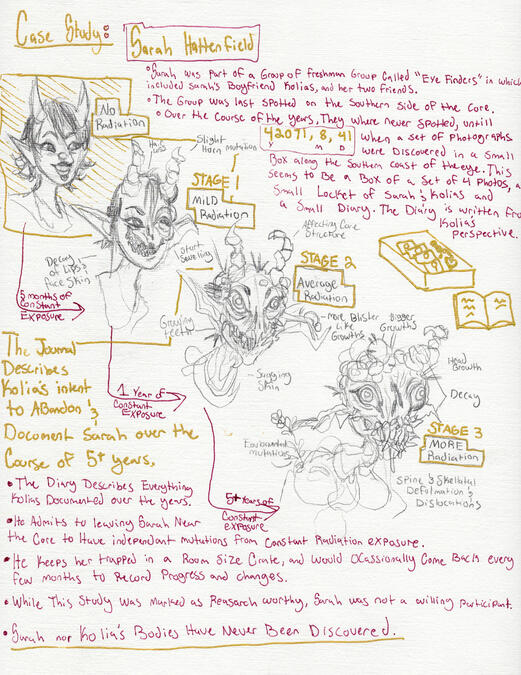 Case Study: Sarah Hattenfield
• Sarah was part of a Group of freshman Group Called "Eye Finders" in which
included Sarah's Boyfriend Kolias, and her two friends.
• The Group was last spotted on the Southern side of the Core.
• Over the Course of the years, They where never spotted, untill
42071, 8, 41
Y M D
When a set of Photographs
were Discovered in a Small
Box along the Southern Coast of the eye. This
seems to Be a Box of a Set of 4 Photos, a
Small Locket of Sarah & Kolias and
a Small Diary. The Diary is written from
Kolia's
Perspective.
No
Radiation
Slight
Horn mutation
Horns
STAGE 1
MILD
Radiation
Decay
of Lips &
Face Skin
Start
Swelling
5 months of
Constant
Exposure
Affecting Core
Structure
STAGE 2
Average
Radiation
Growing
teeth
more Blister
Like
Growths
Bigger
Growths
Sagging
Skin
Head
Growth
Decay
1 Year of
Constant
Exposure
STAGE 3
MORE
Radiation
mutations
Spine & Skelatal
Deformation &
Dislocations
5+ Years of
Constant
exposure
The Journal
Describes
Kolia's intent
to ABandon &
Document Sarah over the
Course of 5+ years,
• The Diary Describes Everything
Kolias Documented over the years.
• He Admits to leaving Sarah Near
the Core to Have independant mutations from Constant Radiation exposure.
• He Keeps her trapped in a Room Size Crate, and would Ocassionally Come Back every
few months to Record Progress and changes.
• While This Study was Marked as Reasarch worthy, Sarah was not a willing participant.
• Sarah nor Kolia's Bodies Have Never Been Discovered.